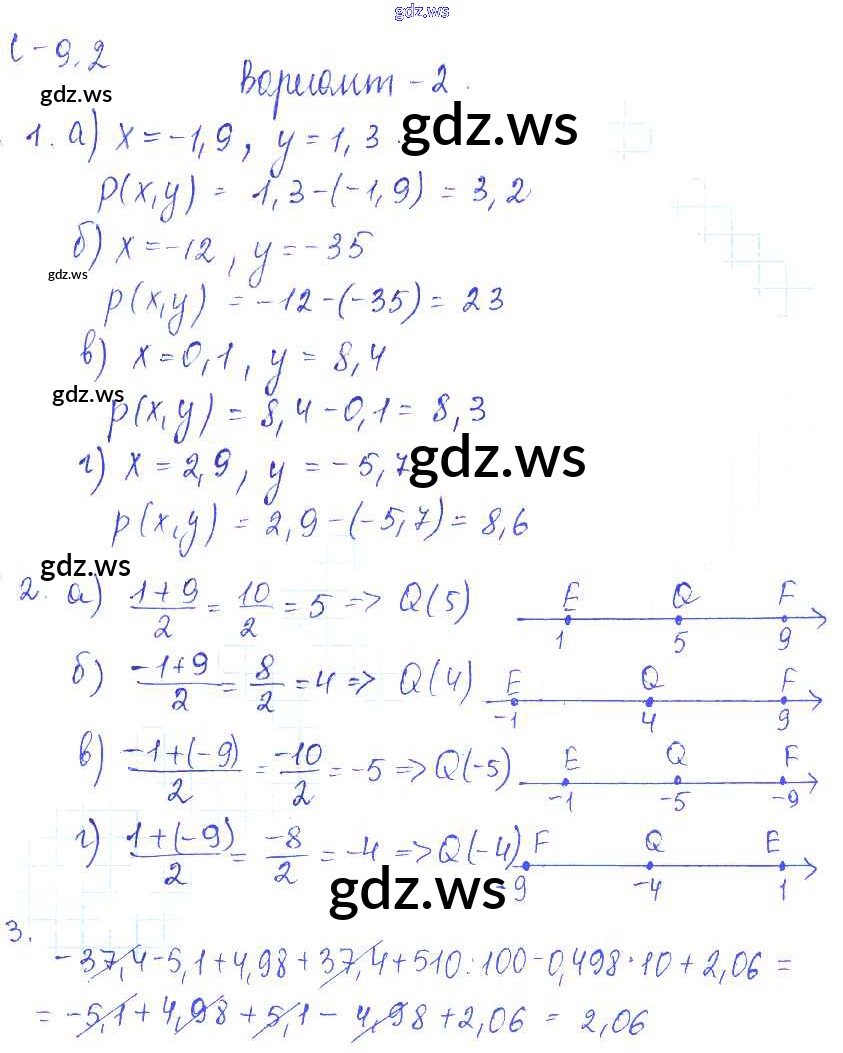 gdz.ws
С-9.2
gdz.ws
Вариант-2.
gdz.ws
1. а) x=-1,9, y=1,3.
p(x,y) = 1,3-(-1,9) = 3,2
б) x=-12, y=-35
gdz.ws
p(x,y) = -12-(-35) = 23
в) x=0,1, y = 8,4
gdz.ws
p(x,y) = 8,4-0,1= 8,3
г) x=2,9, y = -5,7
gdz.ws
p(x,y) = 2,9-(-5,7)= 8,6
gdz.ws
2. а) (1+9)/2 = 10/2 = 5 => Q(5) E Q F
1 5 9
б) (-1+9)/2 = 8/2 = 4 => Q(4) E Q F
-1 4 9
в) (-1+(-9))/2 = -10/2 = -5 => Q(-5) E Q F
-1 -5 -9
г) (1+(-9))/2 = -8/2 = -4 => Q(-4) F Q E
-9 -4 1
gdz.ws
3.
-37,4-5,1+4,98+37,4+510:100-0,498·10+2,06=
= -5,1+4,98+5,1-4,98+2,06 = 2,06